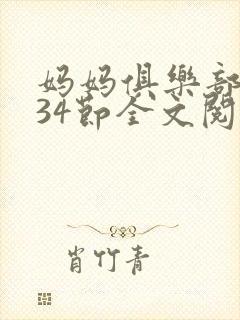 妈妈俱樂部
34節全文閱
肖竹青